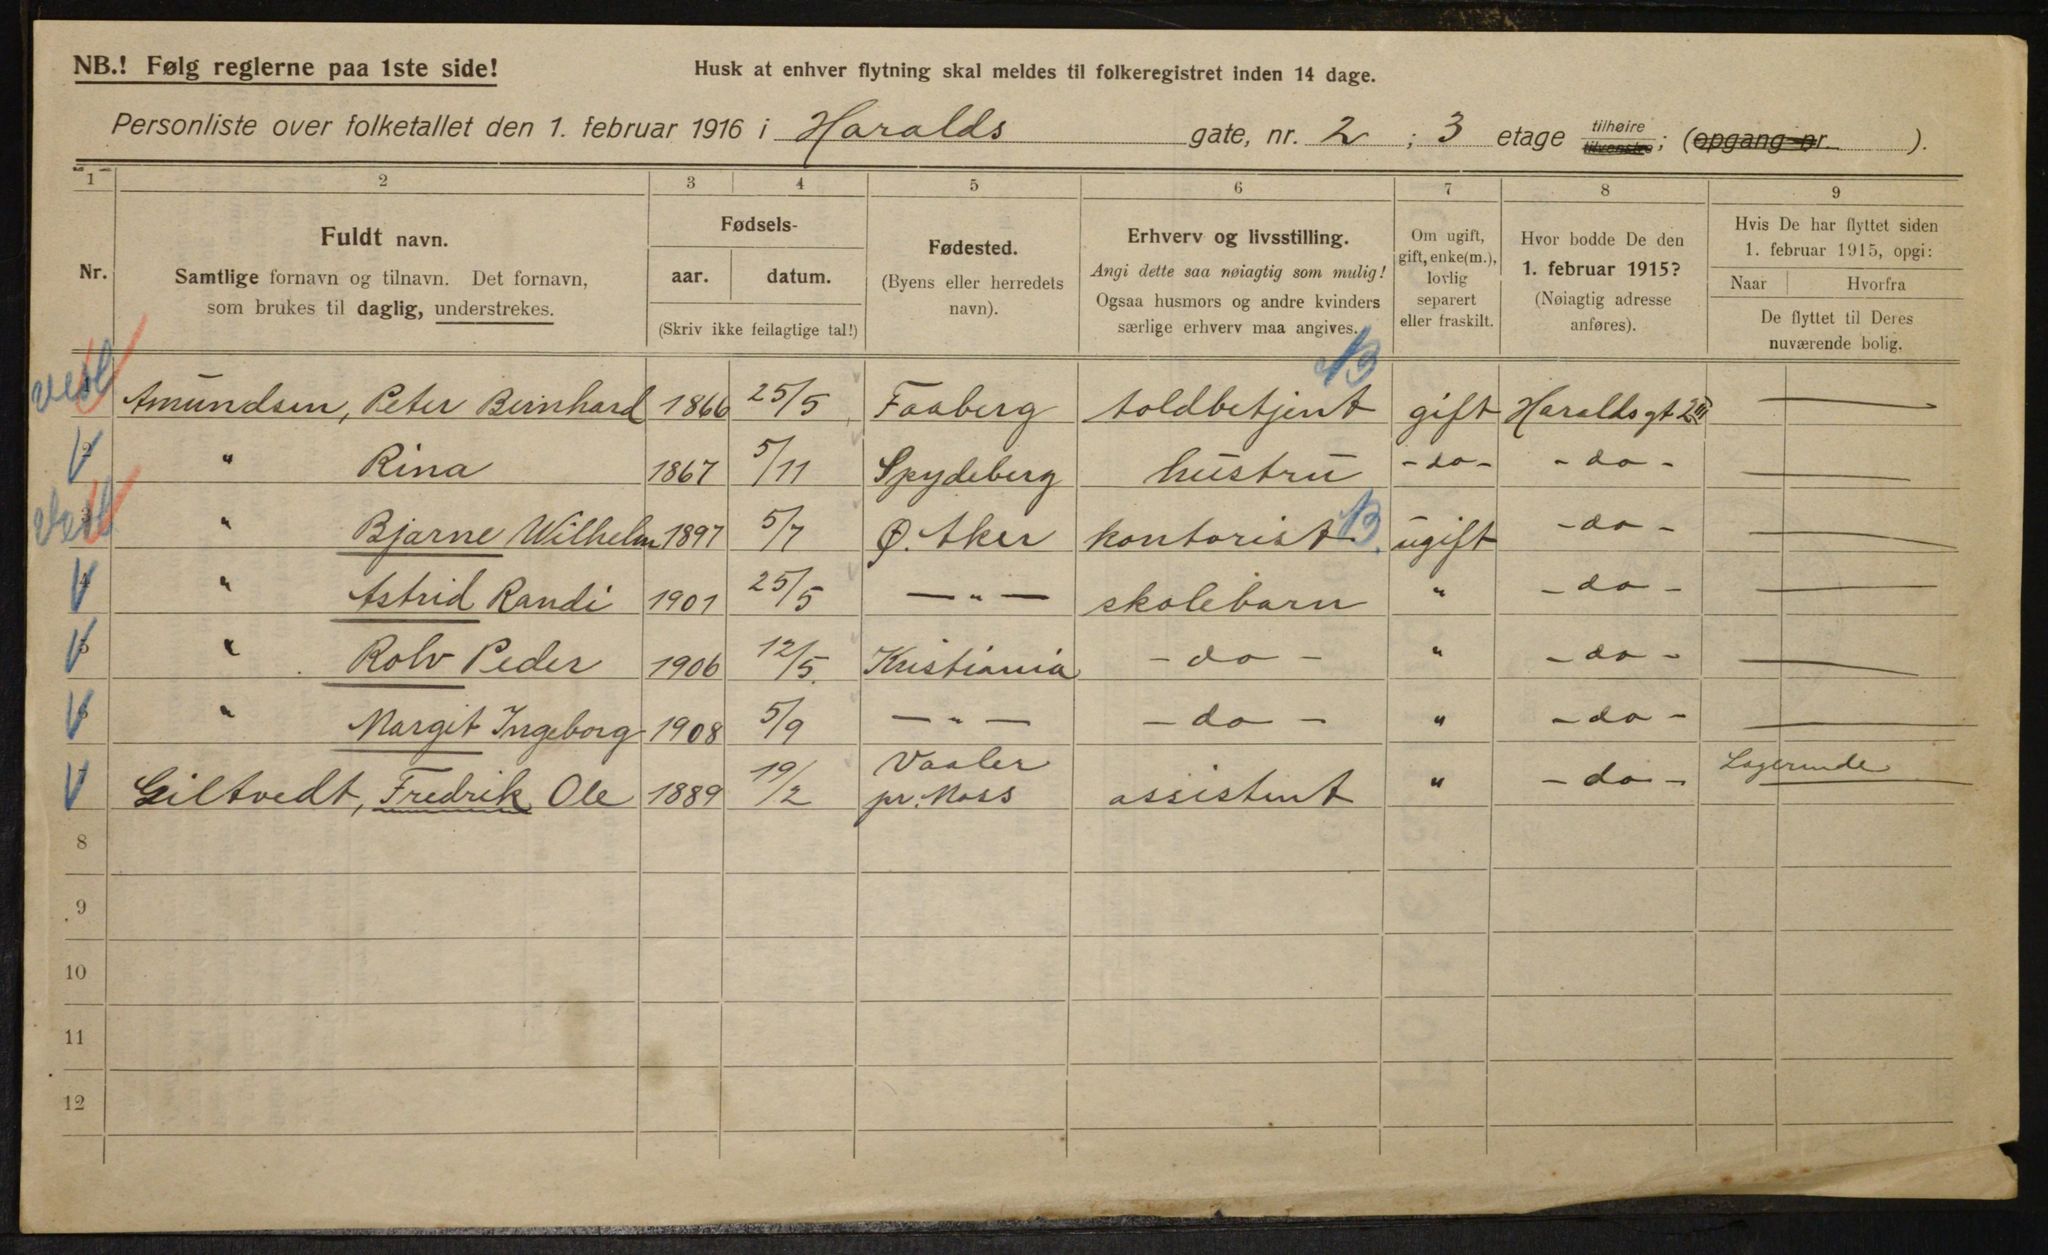 NB.! Følg reglerne paa 1ste side!
Husk at enhver flytning skal meldes til folkeregistret inden 14 dage.
Personliste over folketallet den 1. februar 1916 i Haralds gate, nr. 2 ; 3 etage tilhøire tilvenstre ; (opgang nr. ).
1 2 3 4 5 6 7 8 9
Nr.
Fuldt navn.
Samtlige fornavn og tilnavn. Det fornavn,
som brukes til daglig, understrekes.
Fødsels-
aar. datum.
(Skriv ikke feilagtige tal!)
Fødested.
(Byens eller herredets
navn).
Erhverv og livsstilling.
Angi dette saa nøiagtig som mulig!
Ogsaa husmors og andre kvinders
særlige erhverv maa angives.
Om ugift,
gift, enke(m.),
lovlig
separert
eller fraskilt.
Hvor bodde De den
1. februar 1915?
(Nøiagtig adresse
anføres).
Hvis De har flyttet siden
1. februar 1915, opgi:
Naar Hvorfra
De flyttet til Deres
nuværende bolig.
Amundsen, Peter Bernhard 1866 25/5 Faaberg toldbetjent gift Haraldsgt 2 III —
2 " Rina 1867 5/11 Spydeberg hustru - do - - do - —
3 " Bjarne Wilhelm 1897 5/7 Ø. Aker kontorist. ugift - do - —
4 " Astrid Randi 1901 25/5 — " — skolebarn " - do - —
5 " Rolv Peder 1906 12/5. Kristiania - do - " - do - —
6 " Margit Ingeborg 1908 5/9 — " — - do - " - do - —
7 Giltvedt, Fredrik Ole 1889 19/2 Vaaler pr. Moss assistent " - do - Logerende
8
9
10
11
12